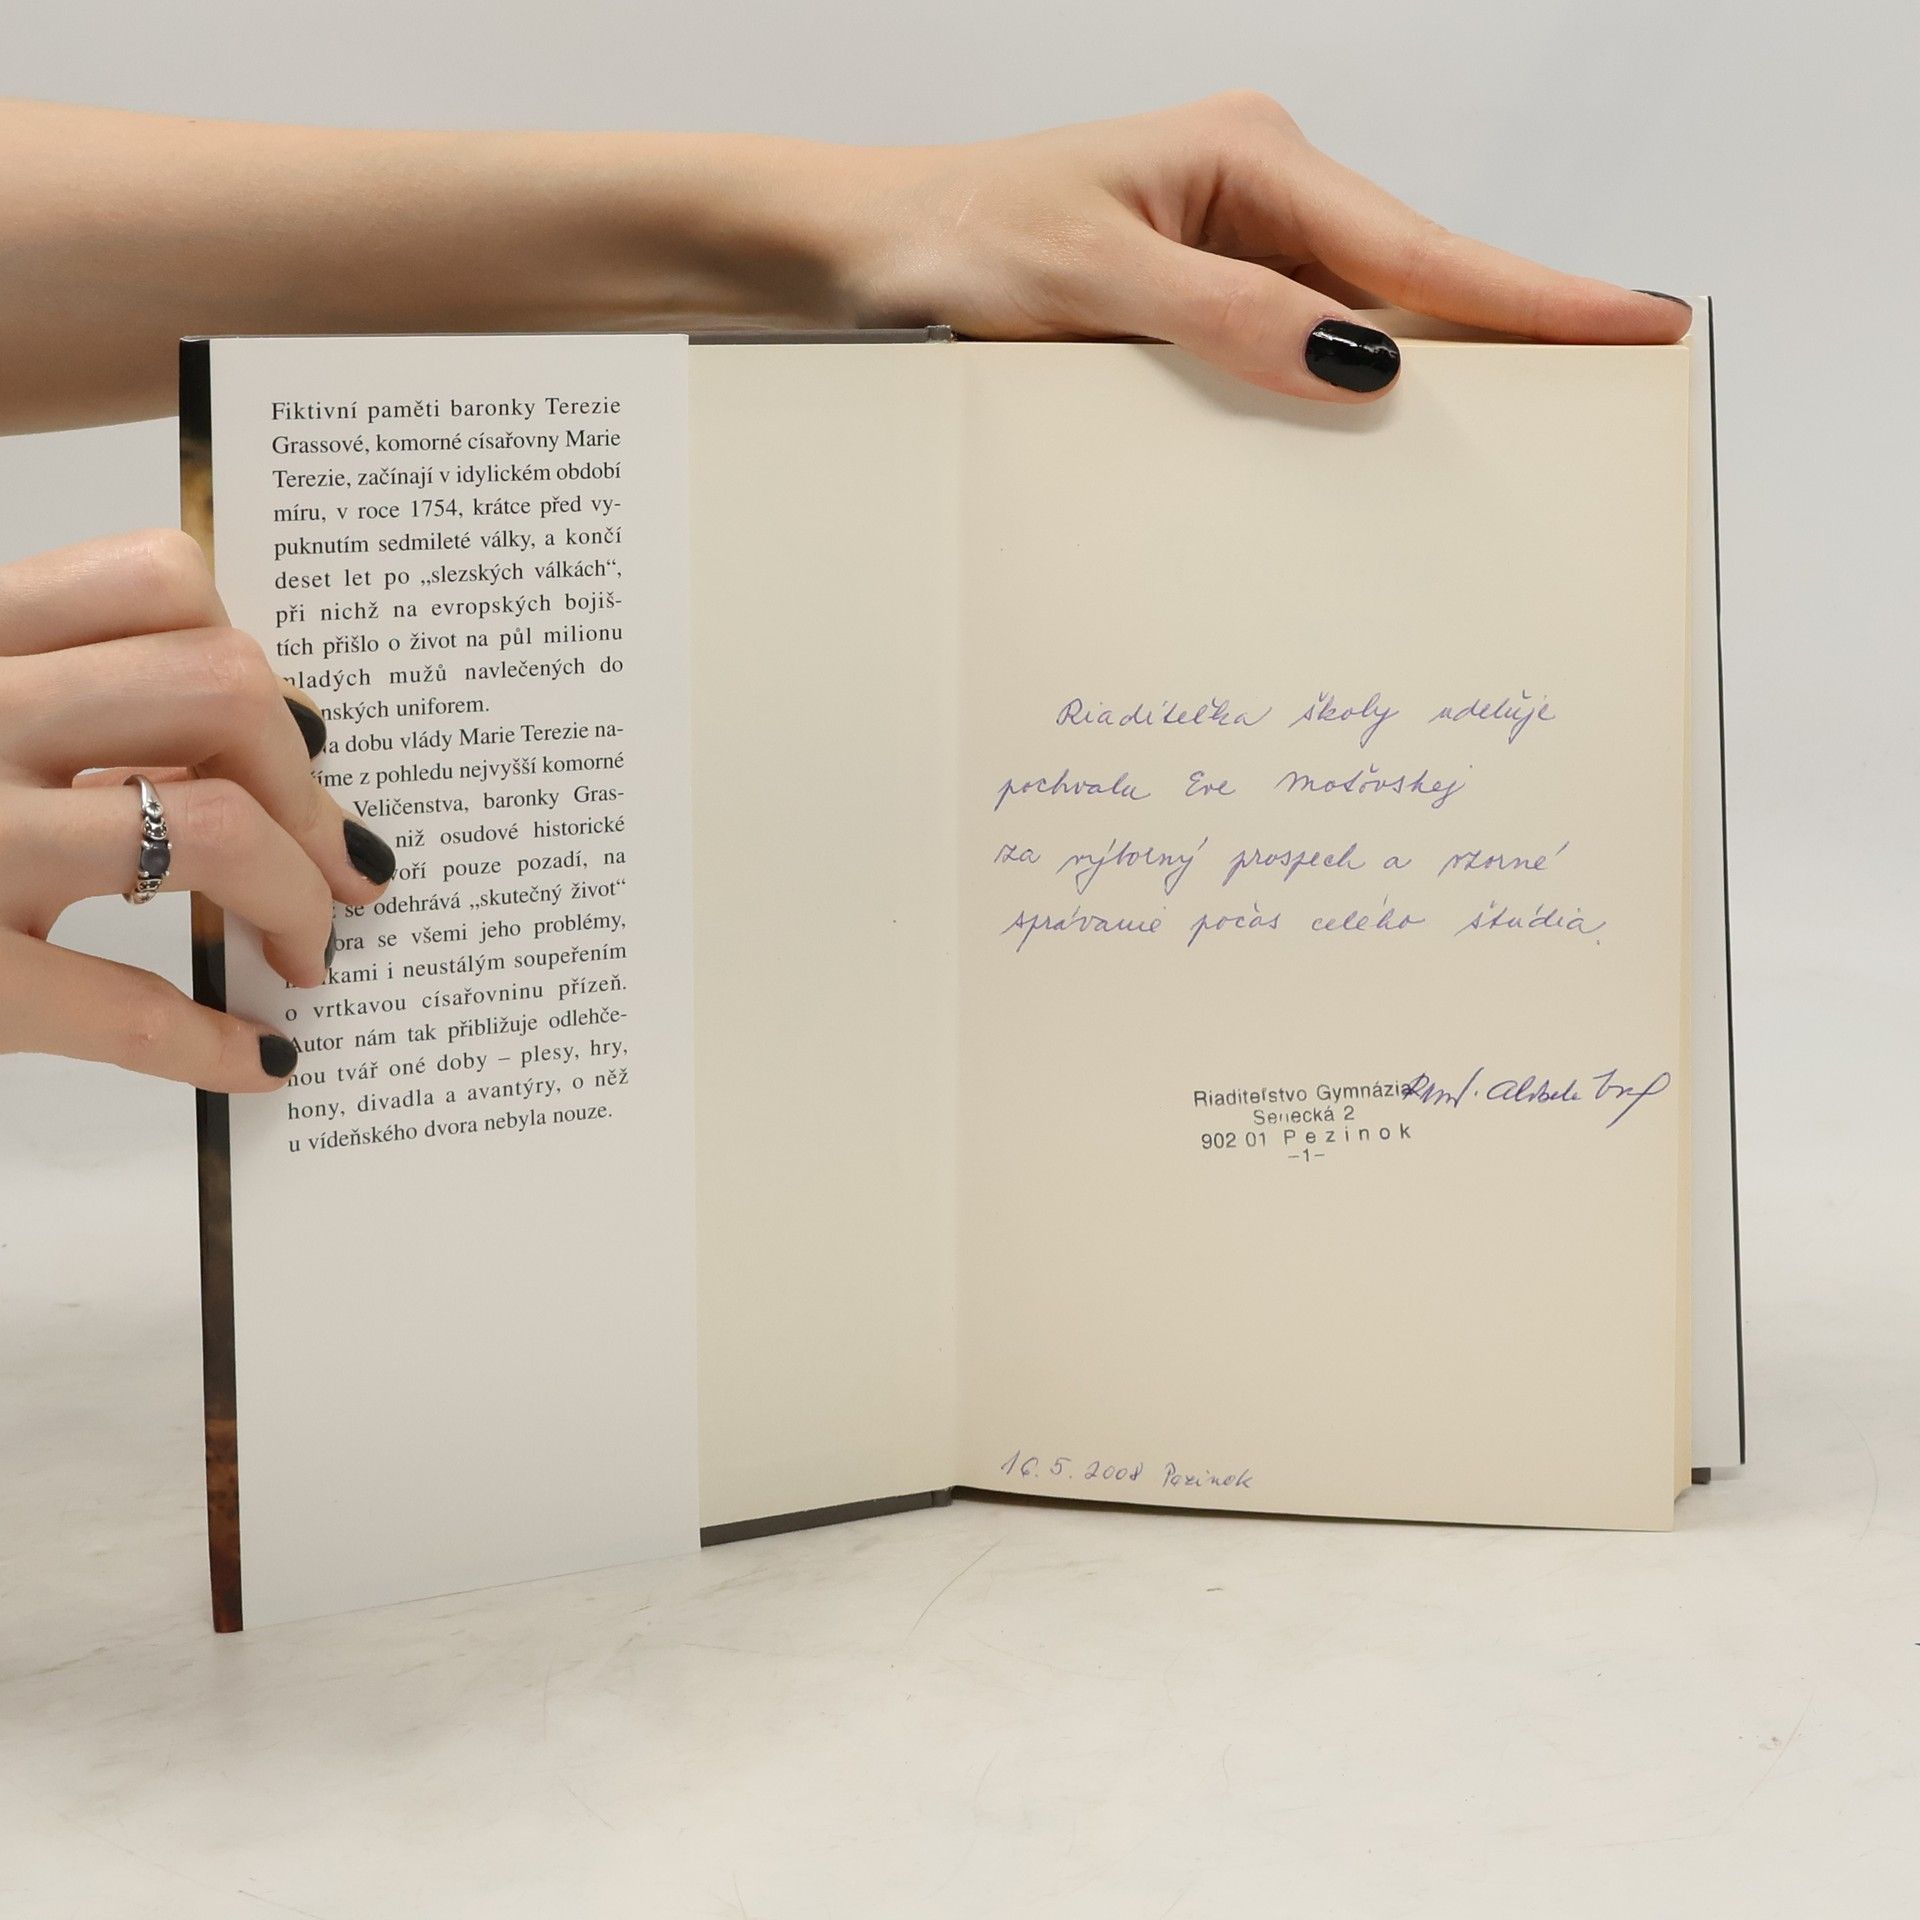 Fiktivní paměti baronky Terezie
Grassové, komorné císařovny Marie
Terezie, začínají v idylickém období
míru, v roce 1754, krátce před vy-
puknutím sedmileté války, a končí
deset let po „slezských válkách“,
při nichž na evropských bojiš-
tích přišlo o život na půl milionu
mladých mužů navlečených do
nských uniforem.
a dobu vlády Marie Terezie na-
íme z pohledu nejvyšší komorné
Veličenstva, baronky Gras-
niž osudové historické
voří pouze pozadí, na
se odehrává „skutečný život“
ora se všemi jeho problémy,
kami i neustálým soupeřením
o vrtkavou císařovninu přízeň.
Autor nám tak přibližuje odlehče-
nou tvář oné doby – plesy, hry,
hony, divadla a avantýry, o něž
u vídeňského dvora nebyla nouze.
Riaditeľka školy udeľuje
pochvalu Eve Moťovskej
za výborný prospech a vzorné
správanie počas celého štúdia.
Riaditeľstvo Gymnázia
Senecká 2
902 01 Pezinok
–1–
16. 5. 2008 Pezinok